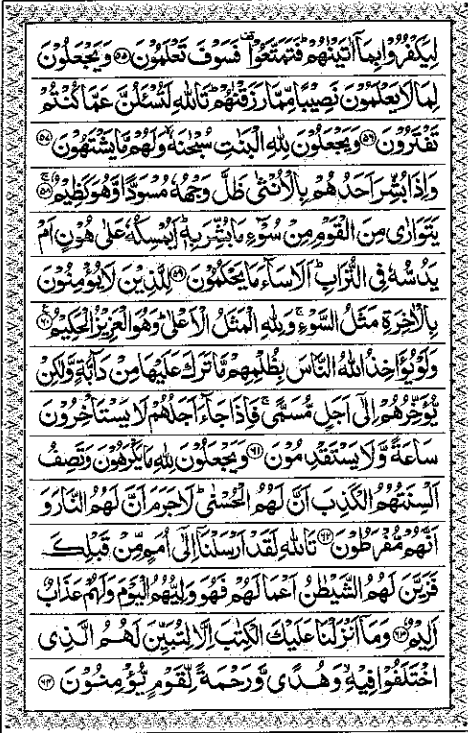 لِيَكْفُرُوْا بِمَاۤ اٰتَيْنٰهُمْؕ فَتَمَتَّعُوْاࣞ فَسَوْفَ تَعْلَمُوْنَ ۵۵ وَيَجْعَلُوْنَ
لِمَا لَا يَعْلَمُوْنَ نَصِيْبًا مِّمَّا رَزَقْنٰهُمْؕ تَاللّٰهِ لَتُسْـَٔلُنَّ عَمَّا كُنْتُمْ
تَفْتَرُوْنَ ۵۶ وَيَجْعَلُوْنَ لِلّٰهِ الْبَنٰتِ سُبْحٰنَهٗۙ وَلَهُمْ مَّا يَشْتَهُوْنَ ۵۷
وَاِذَا بُشِّرَ اَحَدُهُمْ بِالْاُنْثٰى ظَلَّ وَجْهُهٗ مُسْوَدًّا وَّهُوَ كَظِيْمٌۚ ۵۸
يَتَوَارٰى مِنَ الْقَوْمِ مِنْ سُوْٓءِ مَا بُشِّرَ بِهٖؕ اَيُمْسِكُهٗ عَلٰى هُوْنٍ اَمْ
يَدُسُّهٗ فِى التُّرَابِؕ اَلَا سَآءَ مَا يَحْكُمُوْنَ ۵۹ لِلَّذِيْنَ لَا يُؤْمِنُوْنَ
بِالْاٰخِرَةِ مَثَلُ السَّوْءِۚ وَلِلّٰهِ الْمَثَلُ الْاَعْلٰىؕ وَهُوَ الْعَزِيْزُ الْحَكِيْمُ ۶۰
وَلَوْ يُؤَاخِذُ اللّٰهُ النَّاسَ بِظُلْمِهِمْ مَّا تَرَكَ عَلَيْهَا مِنْ دَآبَّةٍ وَّلٰكِنْ
يُّؤَخِّرُهُمْ اِلٰٓى اَجَلٍ مُّسَمًّىۚ فَاِذَا جَآءَ اَجَلُهُمْ لَا يَسْتَاْخِرُوْنَ
سَاعَةً وَّلَا يَسْتَقْدِمُوْنَ ۶۱ وَيَجْعَلُوْنَ لِلّٰهِ مَا يَكْرَهُوْنَ وَتَصِفُ
اَلْسِنَتُهُمُ الْكَذِبَ اَنَّ لَهُمُ الْحُسْنٰىؕ لَا جَرَمَ اَنَّ لَهُمُ النَّارَ وَ
اَنَّهُمْ مُّفْرَطُوْنَ ۶۲ تَاللّٰهِ لَقَدْ اَرْسَلْنَاۤ اِلٰٓى اُمَمٍ مِّنْ قَبْلِكَ
فَزَيَّنَ لَهُمُ الشَّيْطٰنُ اَعْمَالَهُمْ فَهُوَ وَلِيُّهُمُ الْيَوْمَ وَلَهُمْ عَذَابٌ
اَلِيْمٌ ۶۳ وَمَاۤ اَنْزَلْنَا عَلَيْكَ الْكِتٰبَ اِلَّا لِتُبَيِّنَ لَهُمُ الَّذِى
اخْتَلَفُوْا فِيْهِۙ وَهُدًى وَّرَحْمَةً لِّقَوْمٍ يُّؤْمِنُوْنَ ۶۴